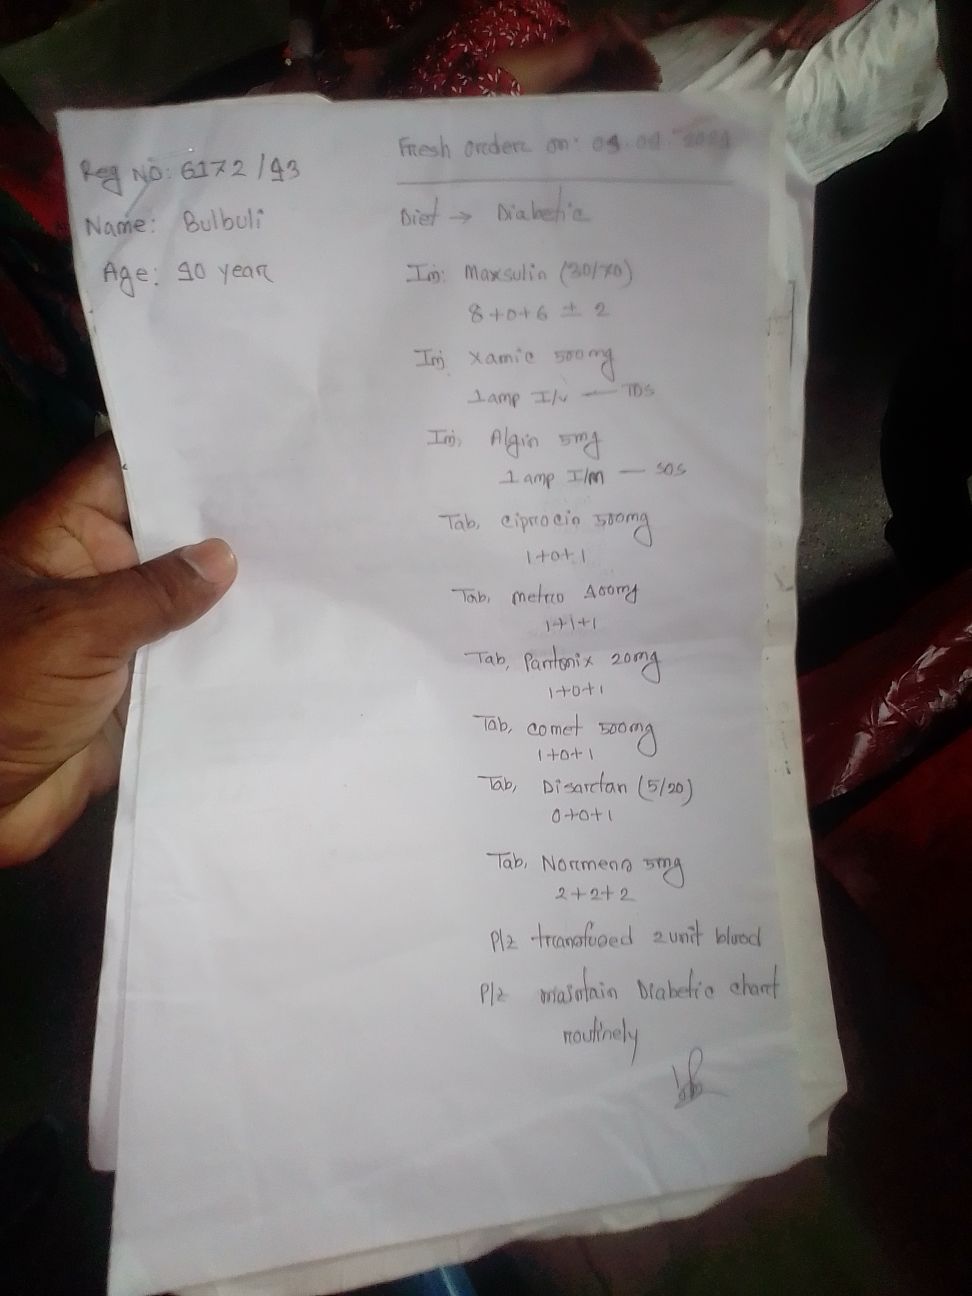 Reg No: 6172/43
Name: Bulbuli
Age: 40 year
Fresh order on: 04.09.2024
Diet → Diabetic
Inj: Maxsulin (30/70)
8+0+6 ± 2
Inj. Xamic 500mg
1amp I/v — TDS
Inj, Algin 5mg
1 amp I/M — SOS
Tab, ciprocin 500mg
1+0+1
Tab, metro 400mg
1+1+1
Tab, Pantonix 20mg
1+0+1
Tab, comet 500mg
1+0+1
Tab, Disartan (5/20)
0+0+1
Tab, Normens 5mg
2+2+2
Plz transfused 2unit blood
Plz maintain Diabetic chart
routinely